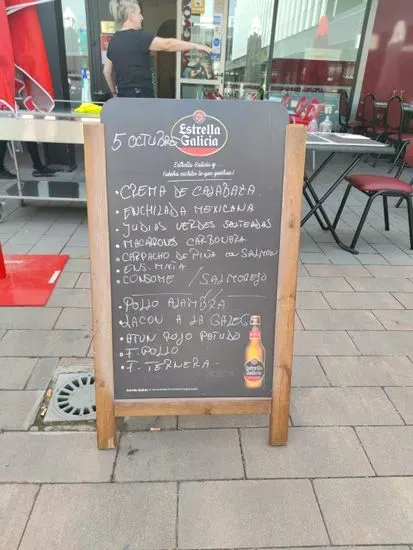 5 OCTUBRE
Estrella
Galicia
Estrella Galicia y
• CREMA DE CALABAZA.
• ENCHILADA MEXICANA
• JUDIAS VERDES SALTEADAS
• MACARONES CARBONARA
• CARPACHO DE PIÑA CON SALMON
• ENS. MIXTA
• CONSOME / SALMOREJO
• POLLO ALAMBRA
• LACON A LA GALEGA
• ATUN ROJO PATUDO
• F. POLLO
• F. TERNERA